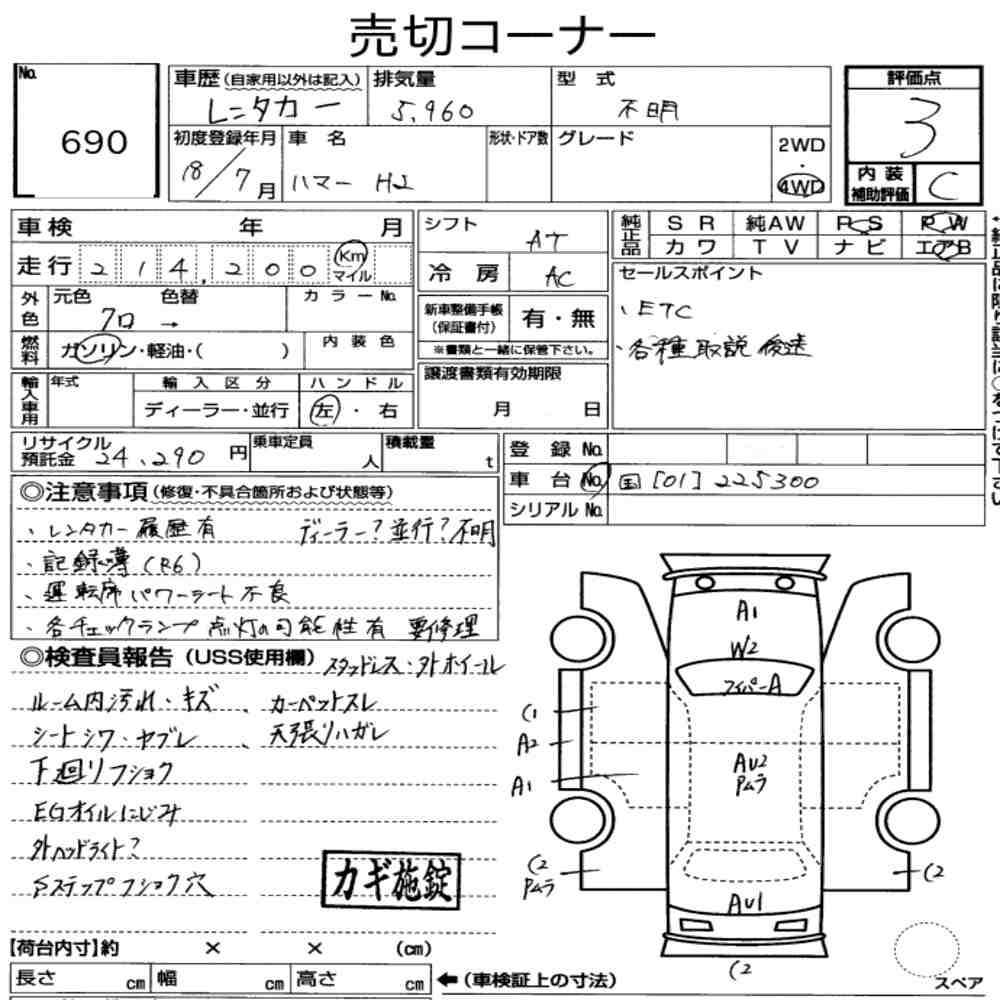 売切コーナー
No.
690
車歴(自家用以外は記入)
レンタカー
排気量
5,960
型式
不明
評価点
3
初度登録年月
18/7月
車名
ハマー H2
形状・ドア数
グレード
2WD
・
4WD
内装
補助評価
C
車検 年 月
走行 214,200 Km マイル
外色
元色 色替
クロ →
カラーNo.
燃料
ガソリン・軽油・( )
内装色
輸入車用
年式
輸入区分
ディーラー・並行
ハンドル
左・右
シフト
AT
冷房
AC
新車整備手帳
(保証書付)
有・無
※書類と一緒に保管下さい。
譲渡書類有効期限
月 日
純正品
SR 純AW PS PW
カワ TV ナビ エアB
セールスポイント
・ETC
・各種取説後送
リサイクル
預託金 24,290 円
乗車定員
人
積載量
t
登録No.
車台No. 国[01]225300
シリアルNo.
◎注意事項(修復・不具合箇所および状態等)
、レンタカー履歴有 ディーラー?並行?不明
、記録簿(R6)
、運転席パワーシート不良
、各チェックランプ点灯の可能性有 要修理
◎検査員報告(USS使用欄) スタッドレス・外ホイール
ルーム内汚れ・キズ 、カーペットスレ
シートシワ・ヤブレ 、天張りハガレ
下廻りフショク
EGオイルにじみ
外ヘッドライト?
Sステップフショク穴
カギ施錠
A1
W2
フイパーA
C1
A2
A1
AU2
Pムラ
C2
Pムラ
C2
AU1
C2
スペア
【荷台内寸】約 × × (cm)
長さ cm 幅 cm 高さ cm
←(車検証上の寸法)